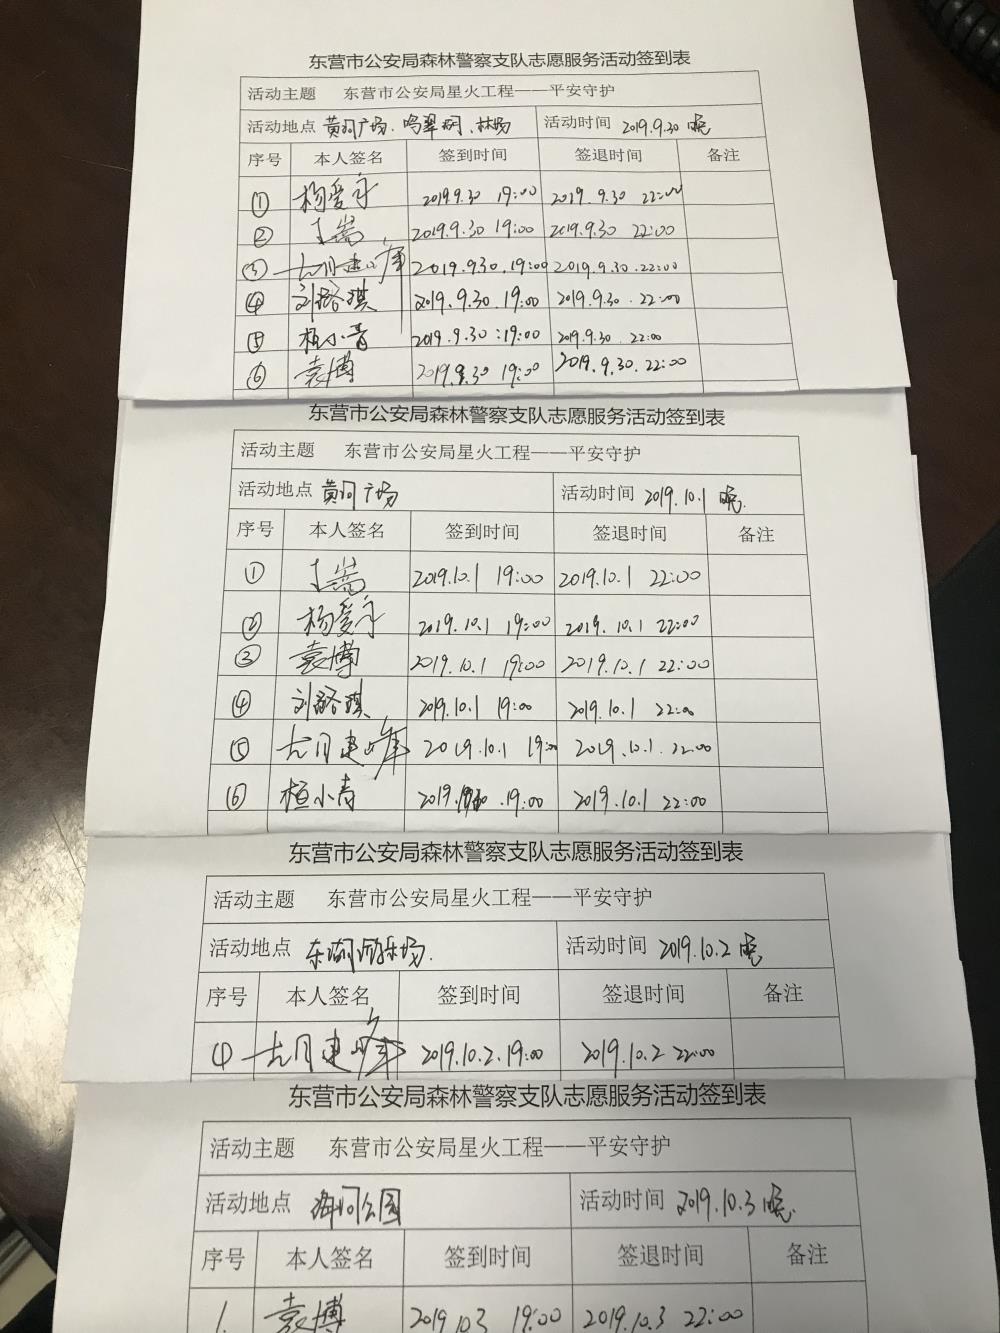 东营市公安局森林警察支队志愿服务活动签到表
活动主题 东营市公安局星火工程——平安守护
活动地点 黄河广场、鸣翠湖、林场 活动时间 2019.9.30 晚
序号 本人签名 签到时间 签退时间 备注
① 杨爱守 2019.9.30 19:00 2019.9.30 22:00
② 2019.9.30 19:00 2019.9.30 22:00
③ 2019.9.30.19:00 2019.9.30.22:00
④ 刘璐琪 2019.9.30.19:00 2019.9.30.22:00
⑤ 桓小青 2019.9.30:19:00 2019.9.30.22:00
⑥ 袁博 2019.9.30 19:00 2019.9.30.22:00
东营市公安局森林警察支队志愿服务活动签到表
活动主题 东营市公安局星火工程——平安守护
活动地点 黄河广场 活动时间 2019.10.1 晚.
序号 本人签名 签到时间 签退时间 备注
① 2019.10.1 19:00 2019.10.1 22:00
② 杨爱守 2019.10.1 19:00 2019.10.1 22:00
③ 袁博 2019.10.1 19:00 2019.10.1 22:00
④ 刘璐琪 2019.10.1 19:00 2019.10.1 22:00
⑤ 2019.10.1 19:00 2019.10.1.22:00
⑥ 桓小青 2019. .19:00 2019.10.1 22:00
东营市公安局森林警察支队志愿服务活动签到表
活动主题 东营市公安局星火工程——平安守护
活动地点 东湖游乐场. 活动时间 2019.10.2 晚
序号 本人签名 签到时间 签退时间 备注
① 2019.10.2.19:00 2019.10.2 22:00
东营市公安局森林警察支队志愿服务活动签到表
活动主题 东营市公安局星火工程——平安守护
活动地点 公园 活动时间 2019.10.3 晚.
序号 本人签名 签到时间 签退时间 备注
1. 袁博 2019.10.3 19:00 2019.10.3 22:00